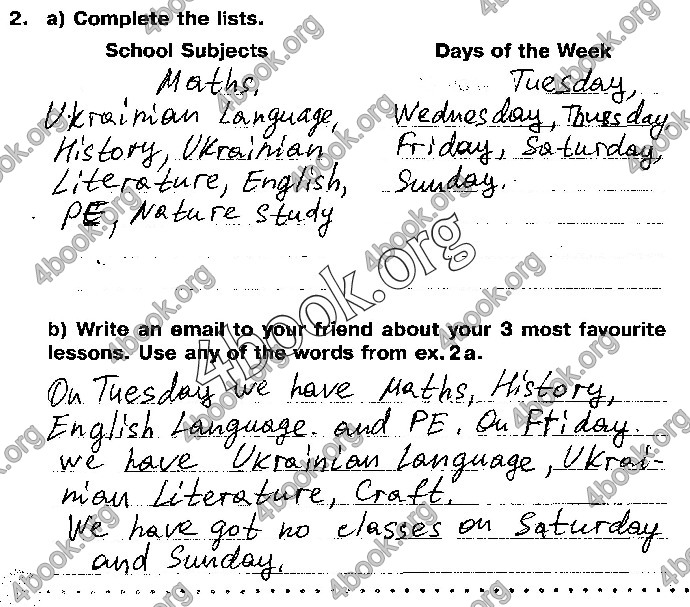 2. a) Complete the lists.
School Subjects Days of the Week
Maths, Tuesday,
Ukrainian Language, Wednesday, Thursday
History, Ukrainian Friday, Saturday,
Literature, English, Sunday.
PE, Nature study
b) Write an email to your friend about your 3 most favourite
lessons. Use any of the words from ex. 2a.
On Tuesday we have Maths, History,
English Language and PE. On Friday
we have Ukrainian Language, Ukrai-
nian Literature, Craft.
We have got no classes on Saturday
and Sunday.
4book.org